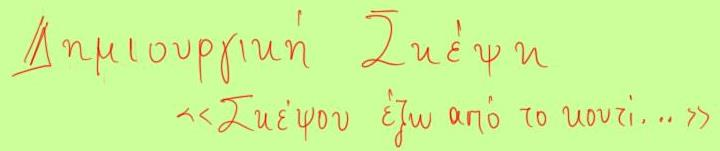 Δημιουργική Σκέψη
<<Σκέψου έξω από το κουτί...>>